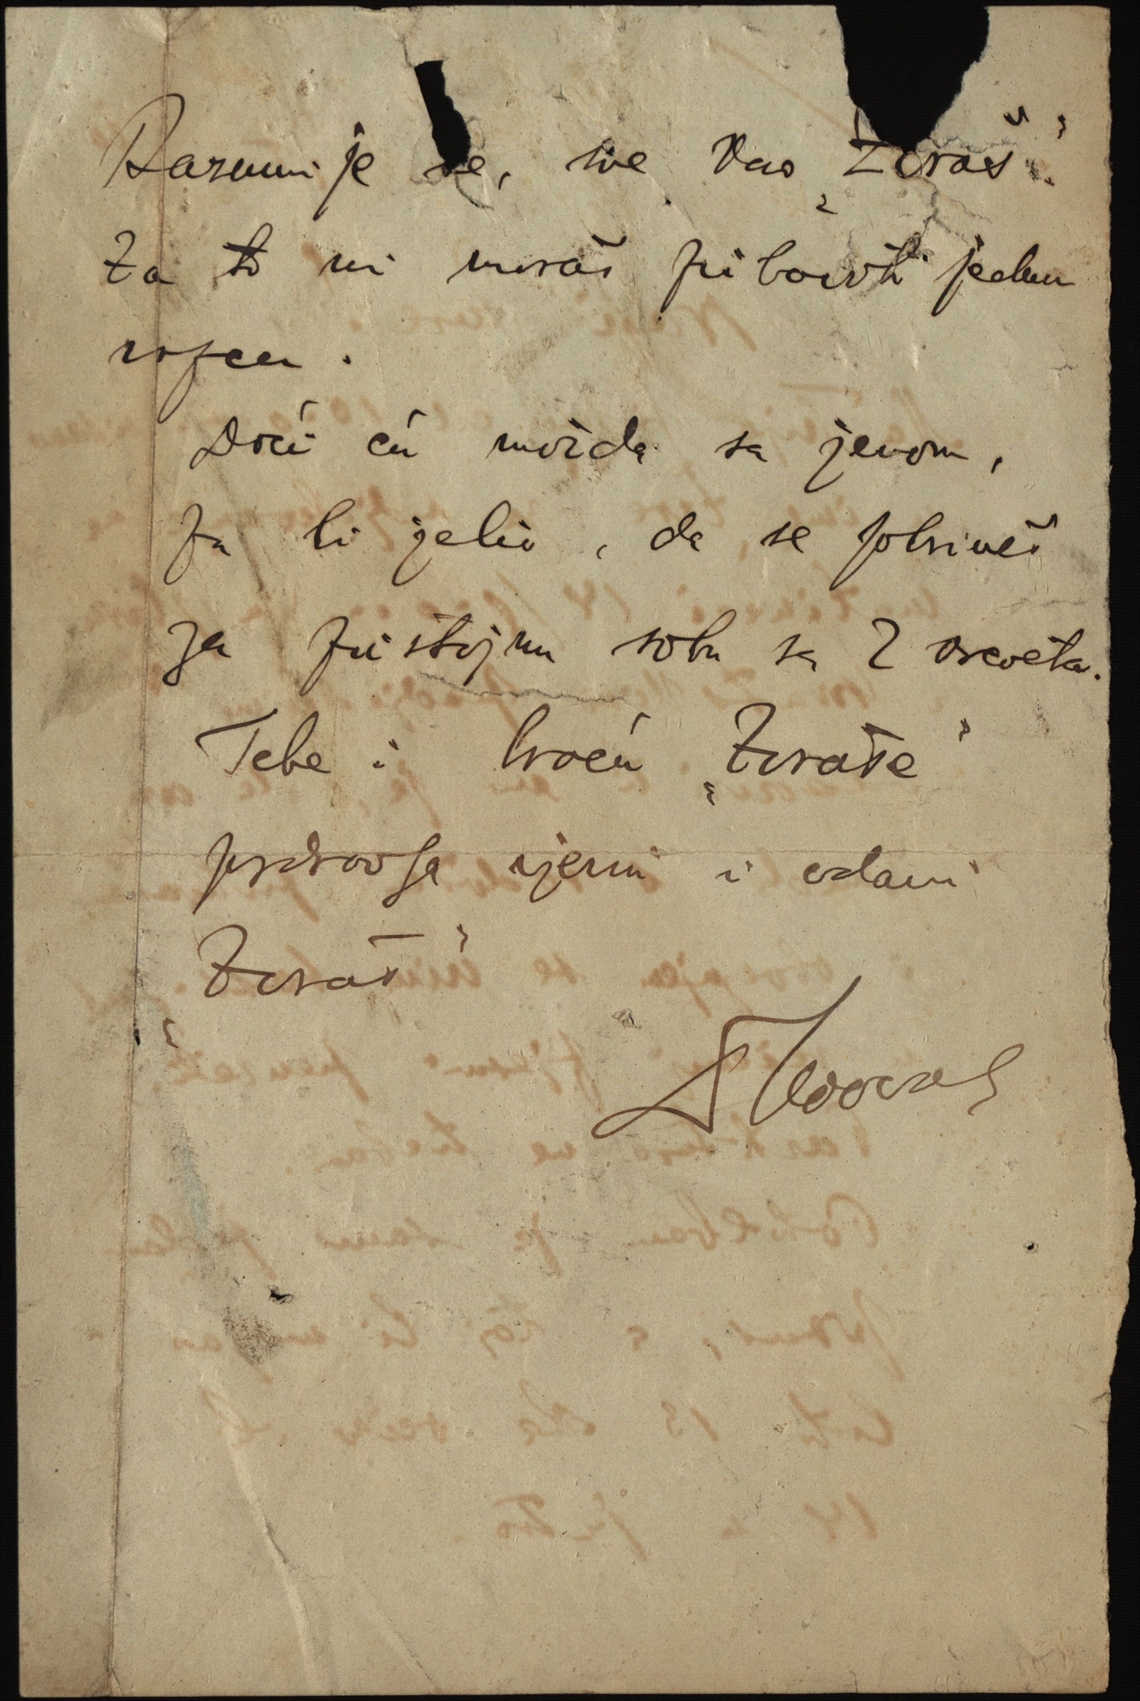 Razumije se, sve kao „Zoraš“.
Za to mi moraš pribaviti jednu
Doći ću možda sa ženom,
pa bi želio, da se pobrineš
za pristojnu sobu sa 2 kreveta.
Tebe i braću „Zoraše“
pozdravlja vjerni i odani
„Zoraš“